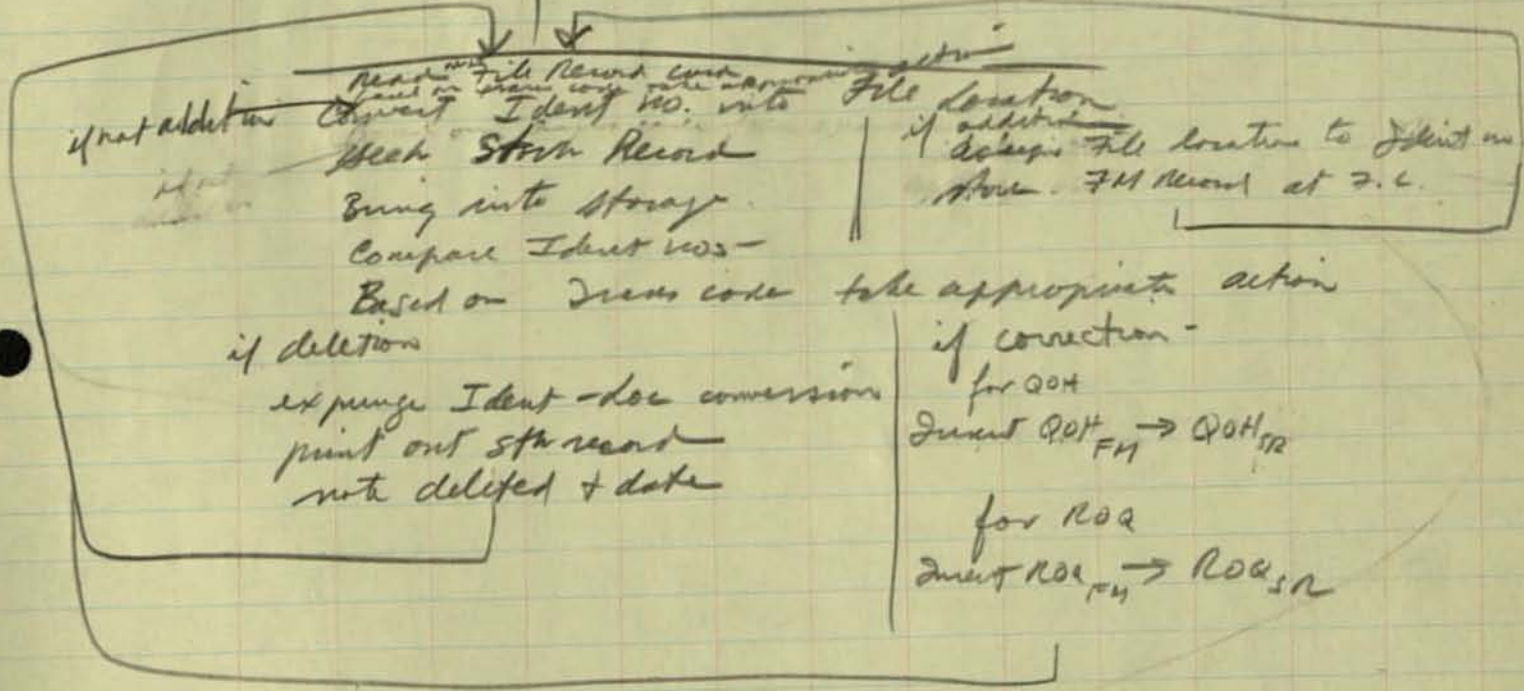 Read next File Record card
based on trans code take appropriate action
if not addition Convert Ident no. into File Location
Seek Stock Record
Bring into storage
Compare Ident nos -
if addition
assign File location to Ident no
store FM Record at F.L.
Based on Trans code take appropriate action
if deletion
expunge Ident - Loc conversion
print out stk record
note deleted + date
if correction -
for QOH
Insert QOH FM → QOH SR
for ROQ
Insert ROQ FM → ROQ SR